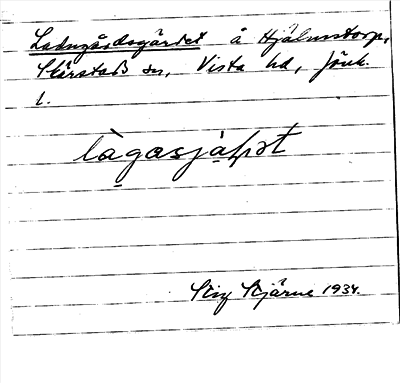 Ladugårdsgärdet å Hjälmstorp,
Skärstad sn, Vista hd, Jönk.
l.
làgasjàḷpət
Stig Stjärne 1934.